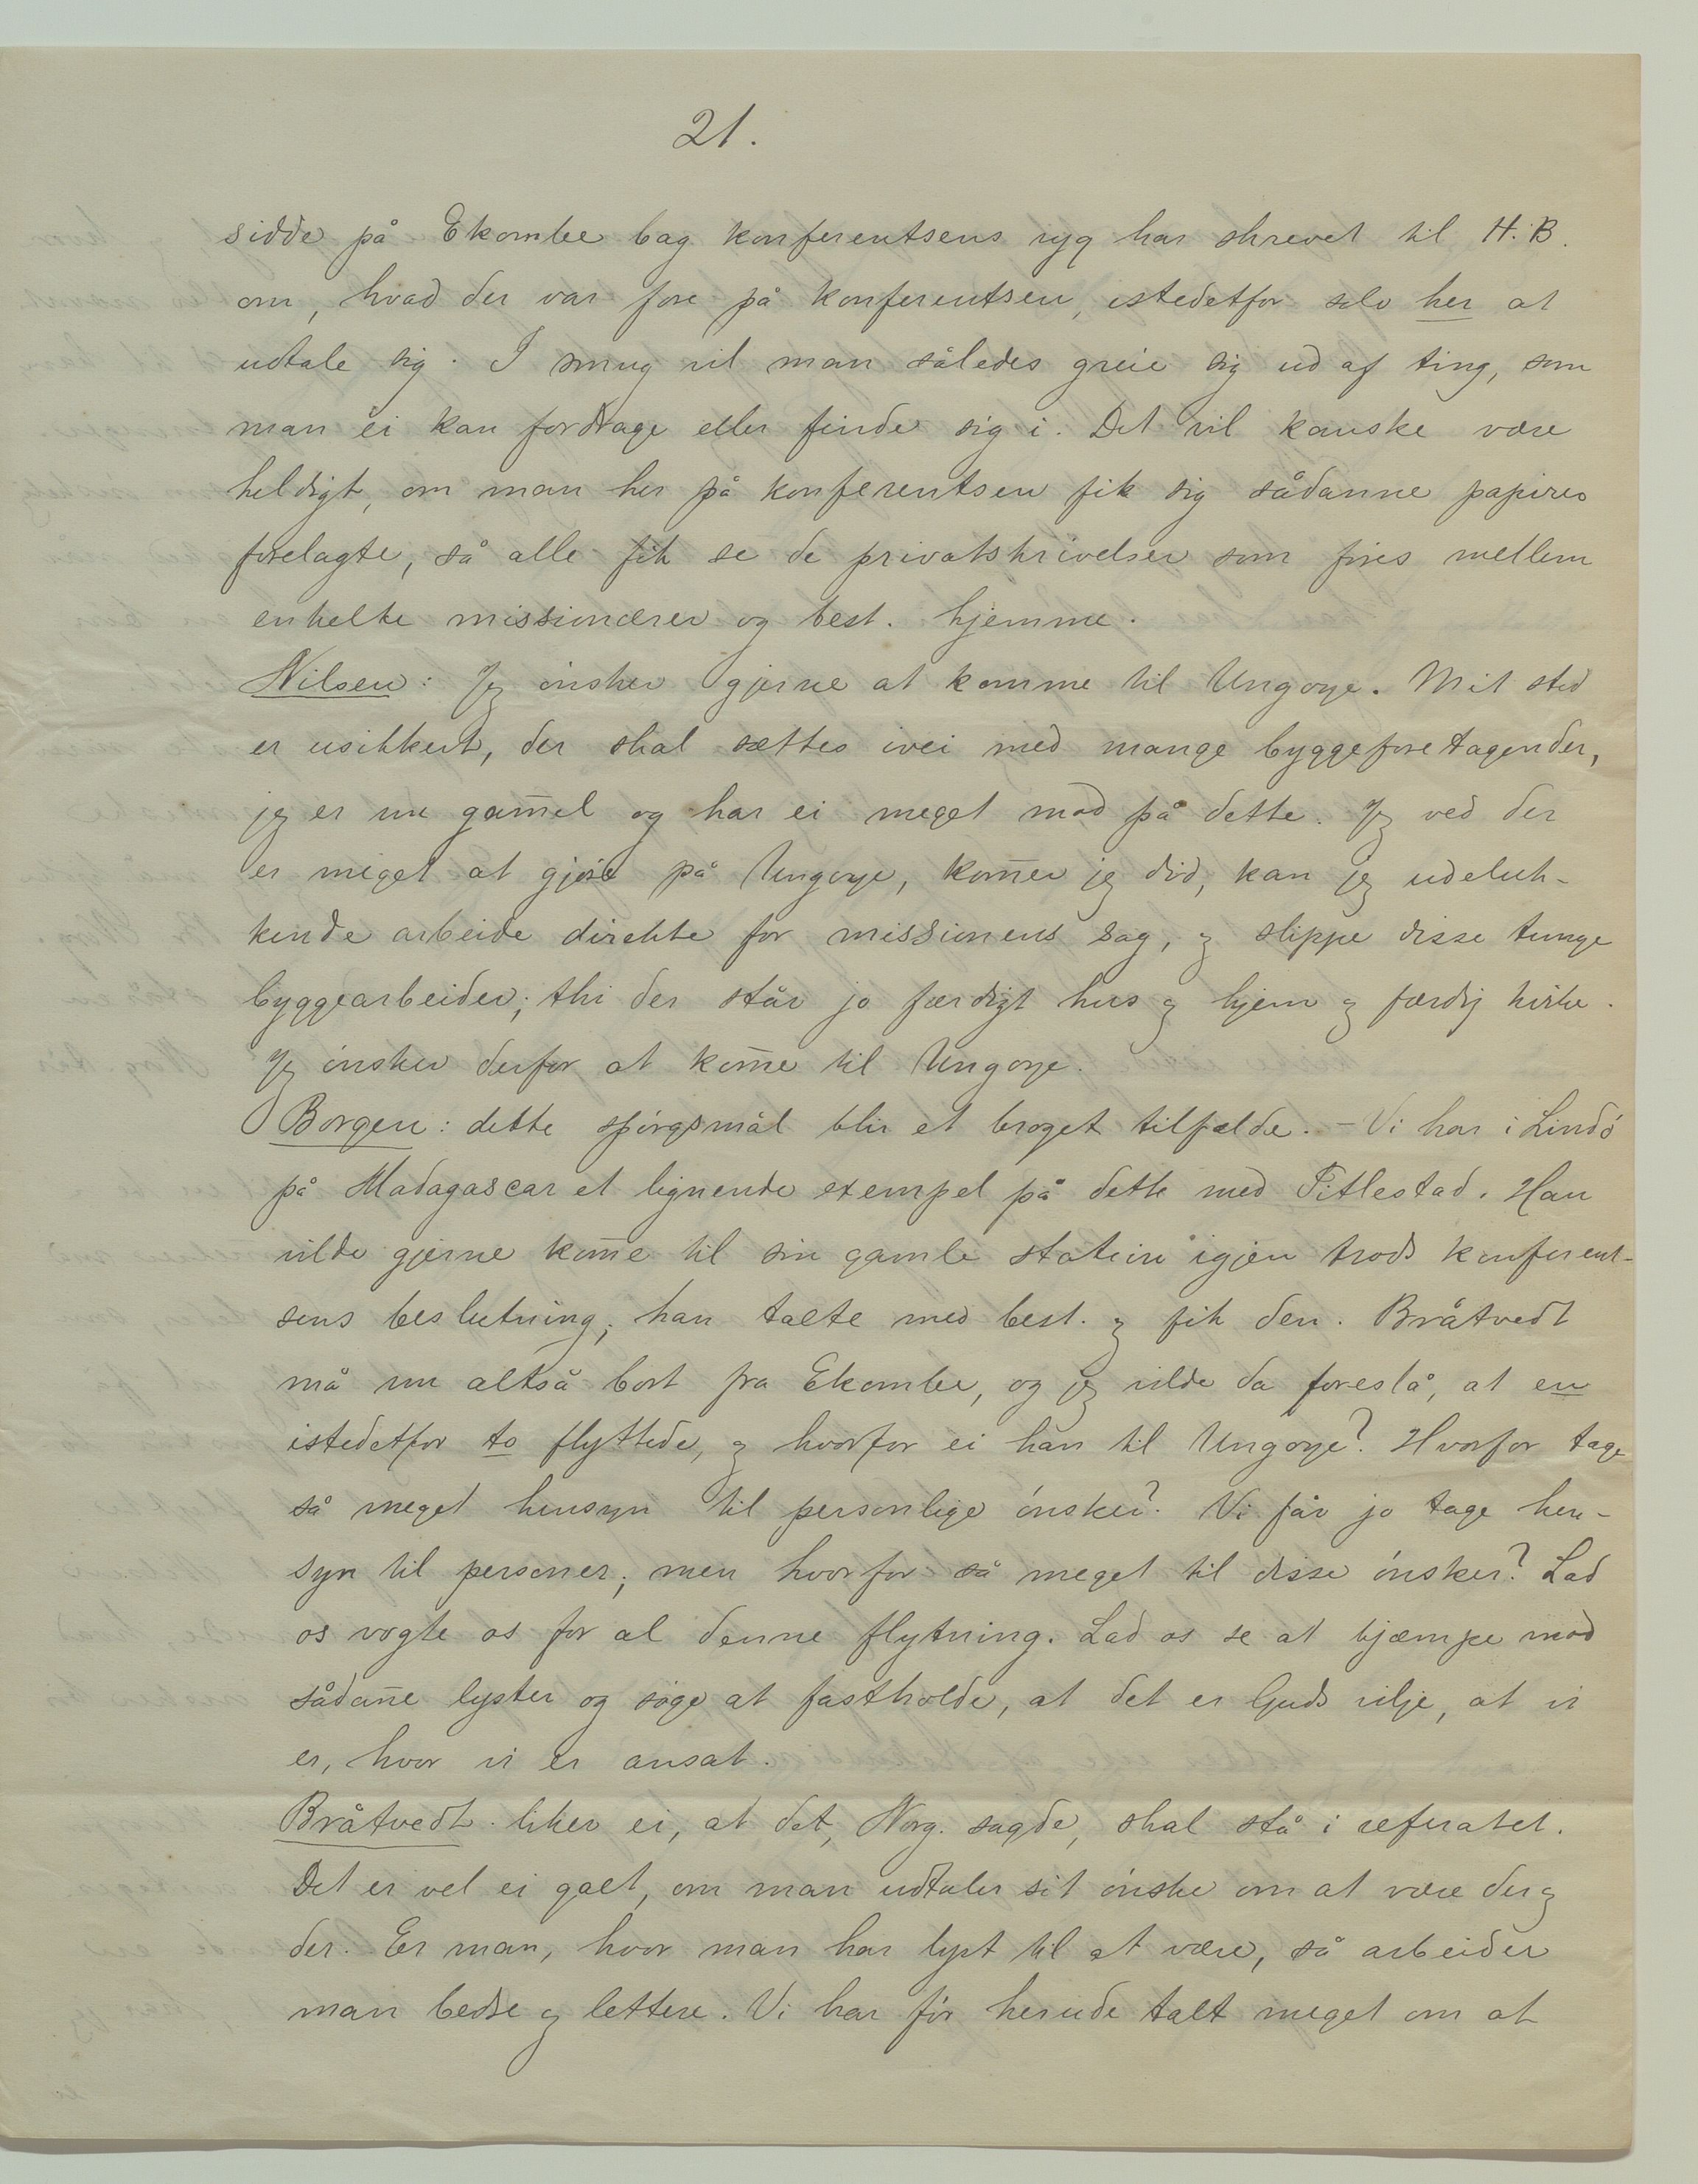 21.
sidde på Ekombe bag konferentsens ryg har skrevet til H.B.
om, hvad der var fore på konferentsen, istedetfor selv her at
udtale sig. I smug vil man således greie sig ud af ting, som
man ei kan fordrage eller finde sig i. Det vil kanske være
heldigt, om man her på konferentsen fik sig sådanne papirer
forelagte, så alle fik se de privatskrivelser som föres mellem
enkelte missionærer og best. hjemme.
Nilsen: Jeg önsker gjerne at komme til Ungoye. Mit sted
er usikkert, der skal sættes ivei med mange byggeforetagender,
jeg er nu gam̄el og har ei meget mod på dette. Jeg ved der
er meget at gjöre på Ungoye, kom̄er jeg did, kan jeg udeluk-
kende arbeide direkte for missionens sag, og slippe disse tunge
byggearbeider; thi der står jo færdigt hus og hjem og færdig kirke.
Jeg önsker derfor at kom̄e til Ungoye.
Borgen: dette spörgsmål blir et broget tilfælde. – Vi har i Lindö
på Madagascar et lignende exempel på dette med Titlestad. Han
vilde gjerne kom̄e til sin gamle station igjen trods konferent-
sens beslutning; han talte med best. og fik den. Bråtvedt
må nu altså bort fra Ekombe, og jeg vilde da foreslå, at en
istedetfor to flyttede, og hvorfor ei han til Ungoye? Hvorfor tage
så meget hensyn til personlige önsker? Vi får jo tage hen-
syn til personer; men hvorfor så meget til disse önsker? Lad
os vogte os for al denne flytning. Lad os se at kjæmpe mod
sådan̄e lyster og söge at fastholde, at det er Guds vilje, at vi
er, hvor vi er ansat.
Bråtvedt liker ei, at det, Norg. sagde, skal stå i referatet.
Det er vel ei galt, om man udtaler sit önske om at være der og
der. Er man, hvor man har lyst til at være, så arbeider
man bedre og lettere. Vi har för herude talt meget om at